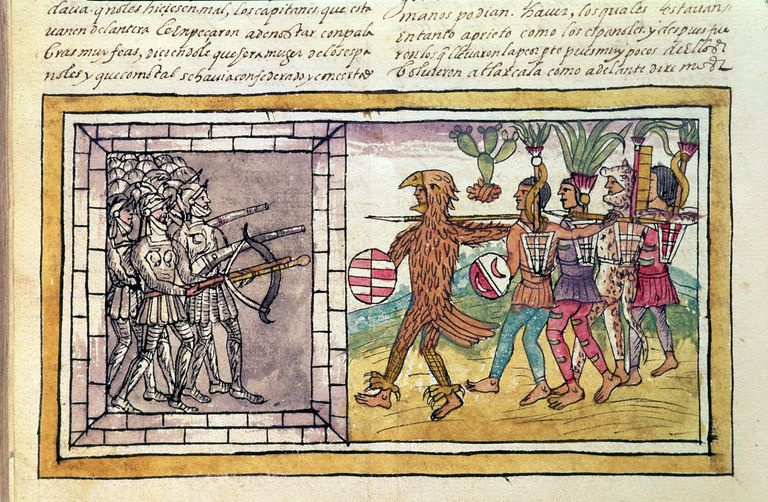 dava. q̃ no les hiciesen mal, los capitanes que esta
van en delantera le empeçaron a denostar con pala
bras muy feas, diciendole que si era muger de los espa
ñoles y que como tal se havia confederado y concerta
manos podian. haver, los quales estavan
en tanto aprieto como los españoles, y despues fue
ron los q̃ llevaron la peor pte pues muy pocos de ellos
bolvieron a tlaxcala como adelante diremos